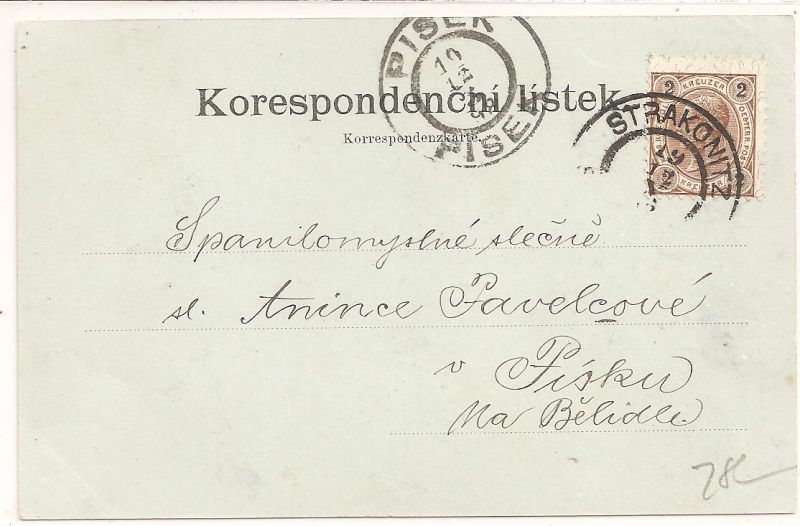 PISEK
PISEK
Korespondenční lístek
Korrespondenzkarte.
2 KREUZER 2
OESTERR. POST
KREUZER 2
STRAKONITZ
19
2
Spanilomyslné slečně
sl. Anince Pavelcové
v Písku
Na Bělidle